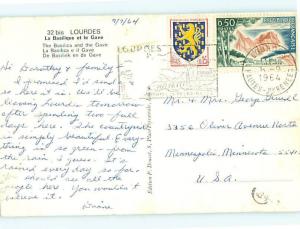 32 bis LOURDES
La Basilique et le Gave
The Basilica and the Gave
La Basilica e il Gave
De Basiliek en de Gave
9/7/64
LOURDES
0,15
0,50
1964
Hi Dorothy & family -
I promised I'd send
so here it is. We will be
leaving Lourdes tomorrow
after spending two full
days here. The countryside
is simply beautiful. Every-
thing is so green - from
the rain I guess. It
rained every day so far
- You should see all the
people here. You wouldn't
believe it.
Diane
Mr. & Mrs. George
3356 Oliver Avenue North
Minneapolis, Minnesota
U.S.A.